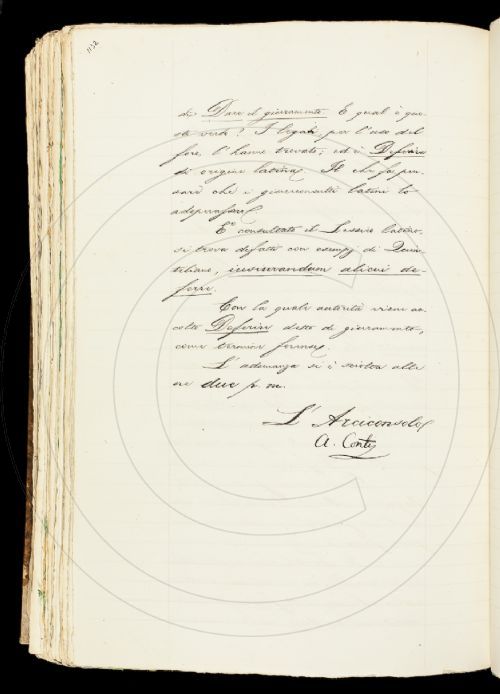 1132
di Dare il giuramento. E qual è que-
staverb? I legali, per l'uso del
foro, l'hanno trovato; ed è Deferire
di origine latina. Il che fa pen-
sare che i giureconsulti latini lo
adoperassero.
E consultato il Lessico latino,
si trova difatto con esempj di Quin-
tiliano, iusiurandum alicui de-
ferre.
Con la quale autorità viene ac-
colto Deferire detto di giuramento,
come termine forense.
L'adunanza si è sciolta alle
ore due p. m.
L'Arciconsolo
A. Conti